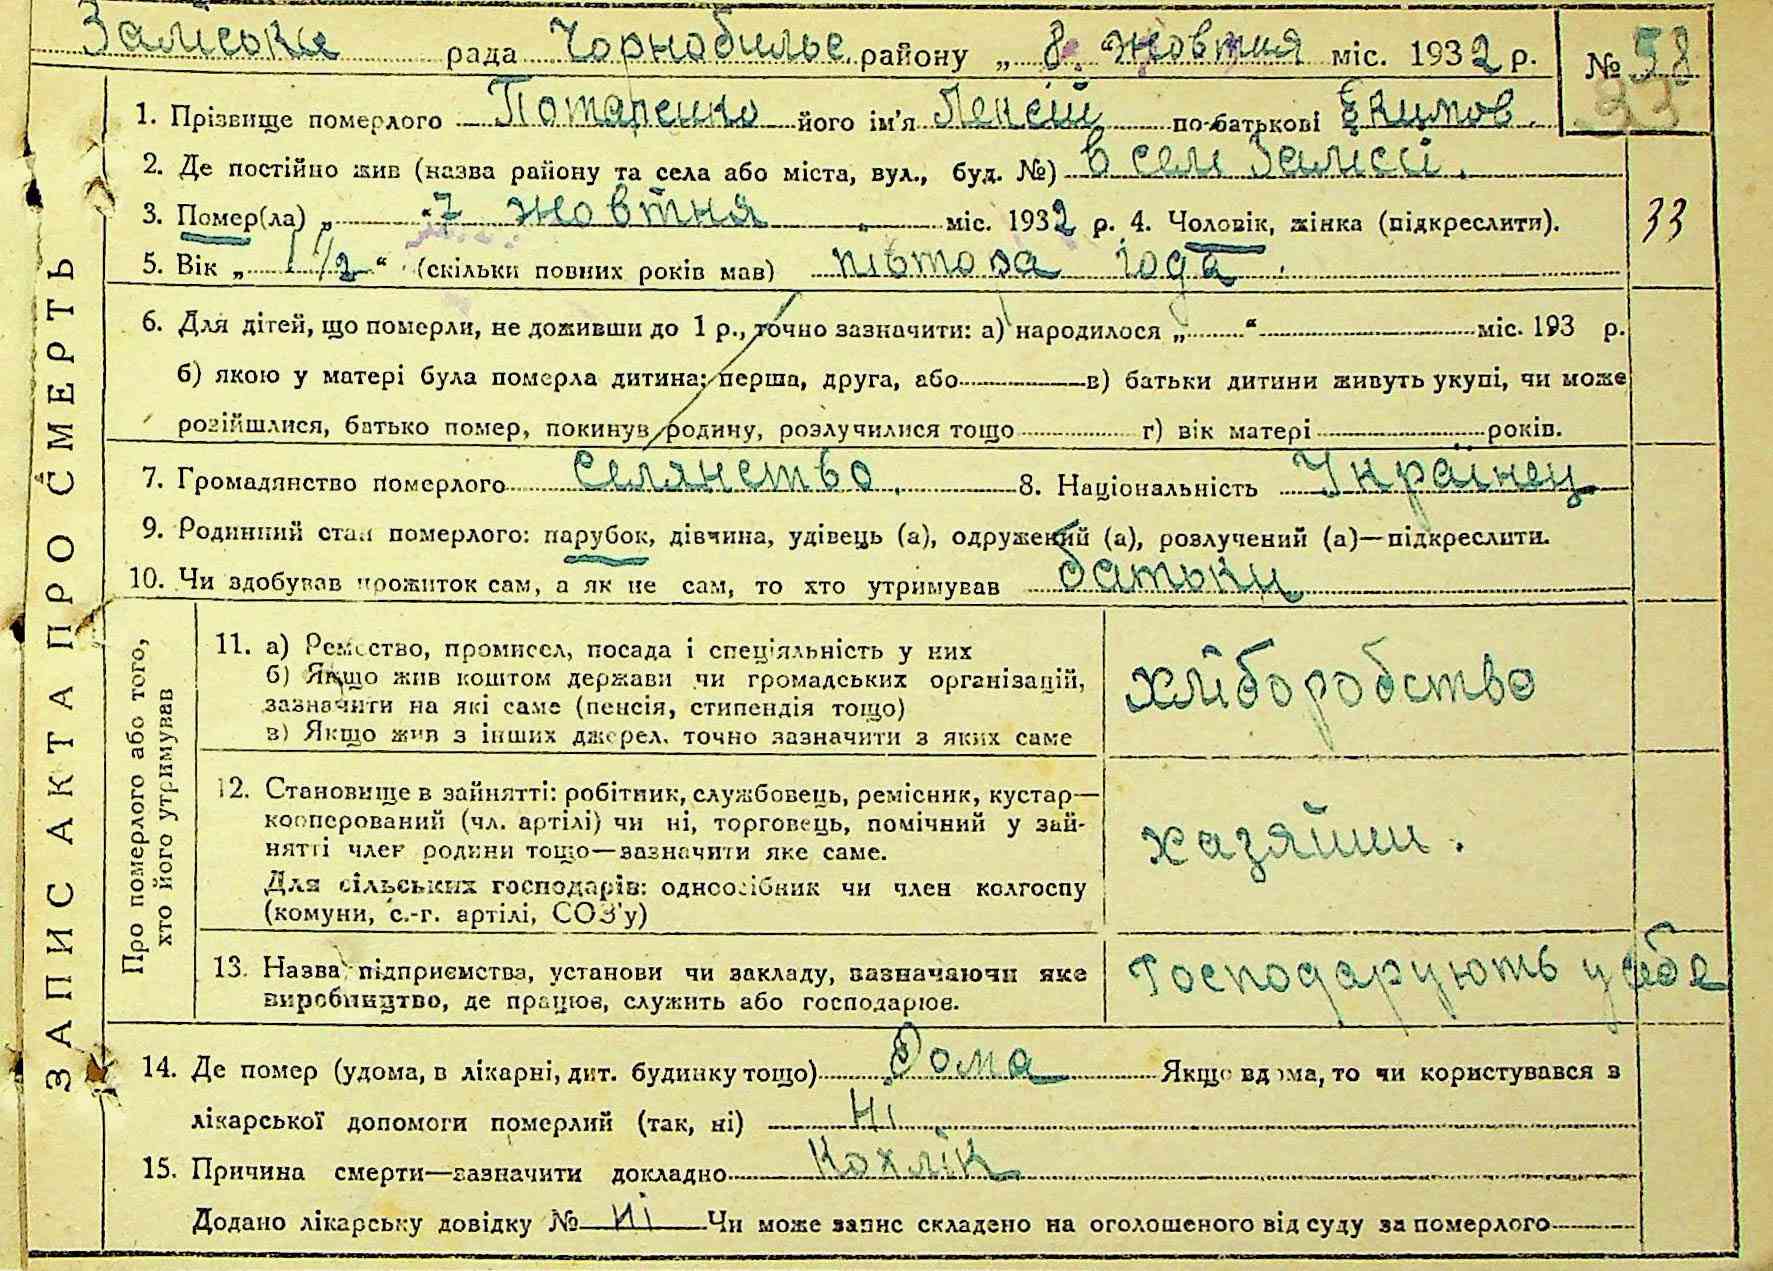 Заліська рада Чорнобильс. району „ 8 " жовтня міс. 1932 р. № 58
33
1. Прізвище померлого Потапенко його ім'я Лексій по-батькові Екимов.
2. Де постійно жив (назва району та села або міста, вул., буд. №) в селі Залissі.
3. Помер(ла) „ 7 жовтня " міс. 1932 р. 4. Чоловік, жінка (підкреслити). 33
5. Вік „ 1 1/2 " (скільки повних років мав) півтора года.
6. Для дітей, що померли, не доживши до 1 р., точно зазначити: а) народилося „ “ міс. 193 р.
б) якою у матері була померла дитина: перша, друга, або в) батьки дитини живуть укупі, чи може
розійшлися, батько помер, покинув родину, розлучилися тощо г) вік матері років.
7. Громадянство померлого селянство. 8. Національність Украінец
9. Родинний стан померлого: парубок, дівчина, удівець (а), одружений (а), розлучений (а)—підкреслити.
10. Чи здобував прожиток сам, а як не сам, то хто утримував батьки
11. а) Ремество, промисел, посада і спеціяльність у них
б) Якщо жив коштом держави чи громадських організацій,
зазначити на які саме (пенсія, стипендія тощо)
в) Якщо жив з інших джерел, точно зазначити з яких саме
хліборобство
12. Становище в зайнятті: робітник, службовець, ремісник, кустар—
кооперований (чл. артілі) чи ні, торговець, помічний у зай-
нятті член родини тощо—зазначити яке саме.
Для сільських господарів: одноосібник чи член колгоспу
(комуни, с.-г. артілі, СОЗ'у)
хазяйни.
13. Назва підприємства, установи чи закладу, зазначаючи яке
виробництво, де працює, служить або господарює.
Господарують у себе
14. Де помер (удома, в лікарні, дит. будинку тощо) Дома Якщо вдома, то чи користувався з
лікарської допомоги померлий (так, ні) Ні
15. Причина смерти—зазначити докладно Кохлік
Додано лікарську довідку № ні Чи може запис складено на оголошеного від суду за померлого
ЗАПИС АКТА ПРО СМЕРТЬ
Про померлого або того,
хто його утримував